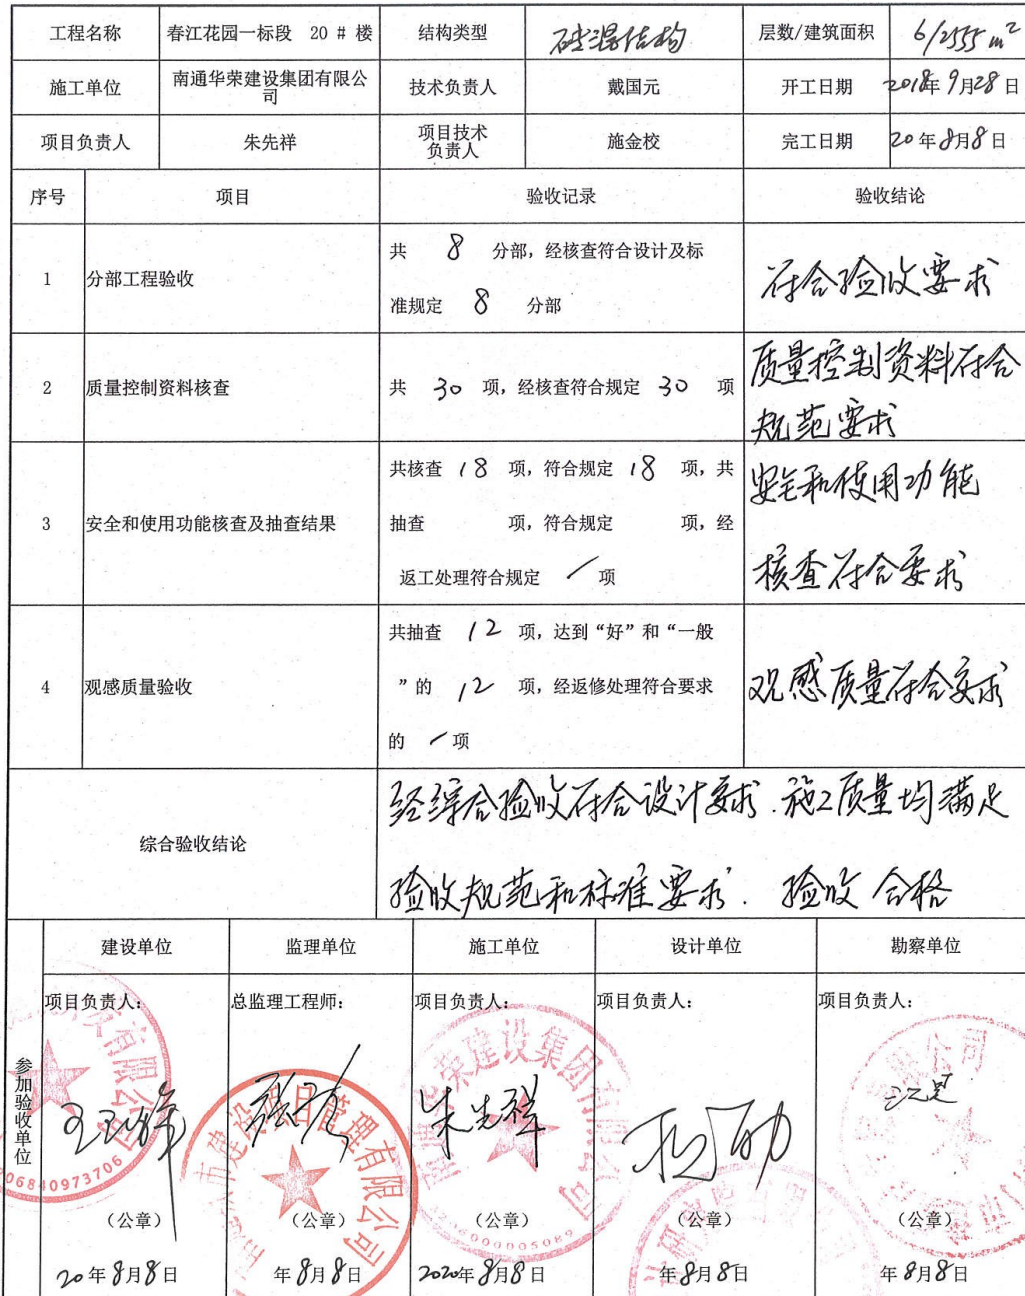 工程名称 春江花园一标段 20 # 楼 结构类型 砖混结构 层数/建筑面积 6/2555 m²
施工单位 南通华荣建设集团有限公司 技术负责人 戴国元 开工日期 2018年9月28日
项目负责人 朱先祥 项目技术负责人 施金校 完工日期 20年8月8日
序号 项目 验收记录 验收结论
1 分部工程验收 共 8 分部，经核查符合设计及标
准规定 8 分部
符合验收要求
2 质量控制资料核查 共 30 项，经核查符合规定 30 项
质量控制资料符合
规范要求
3 安全和使用功能核查及抽查结果
共核查 18 项，符合规定 18 项，共
抽查 项，符合规定 项，经
返工处理符合规定 / 项
安全和使用功能
核查符合要求
4 观感质量验收
共抽查 12 项，达到“好”和“一般
”的 12 项，经返修处理符合要求
的 / 项
观感质量符合要求
综合验收结论
经综合验收符合设计要求.施工质量均满足
验收规范和标准要求. 验收合格
参加验收单位
建设单位 监理单位 施工单位 设计单位 勘察单位
项目负责人： 总监理工程师： 项目负责人： 项目负责人： 项目负责人：
朱先祥
有限公司
市建设项目管理有限公司
华荣建设集团有限公司
06840973706
（公章） （公章） （公章） （公章） （公章）
20年8月8日 年8月8日 2020年8月8日 年8月8日 年8月8日